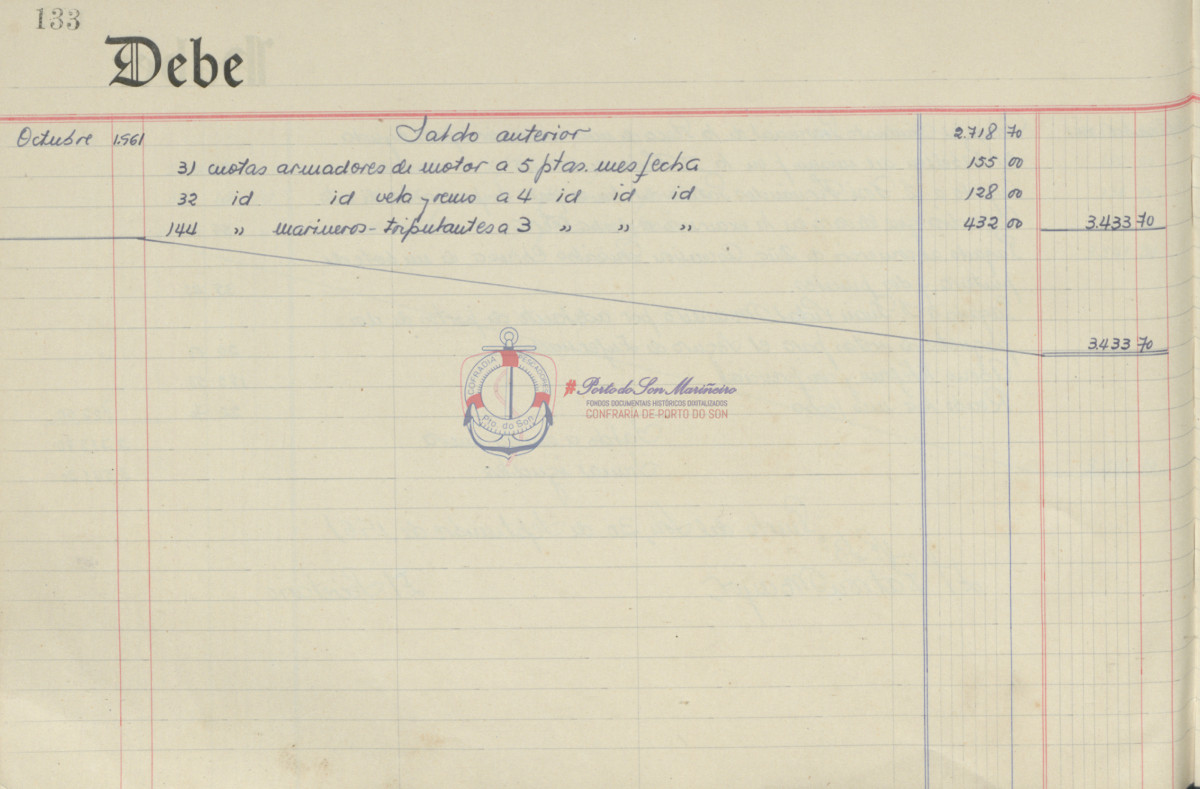 133
Debe
Octubre 1.961 Saldo anterior 2.718 70
31 cuotas armadores de motor a 5 ptas. mes fecha 155 00
32 id id vela y remo a 4 id id id 128 00
144 „ marineros-tripulantes a 3 „ „ „ 432 00 3.433 70
3.433 70
COFRADIA PESCADORES
Pto. do Son
#Porto do Son Mariñeiro
FONDOS DOCUMENTAIS HISTÓRICOS DIXITALIZADOS
CONFRARIA DE PORTO DO SON